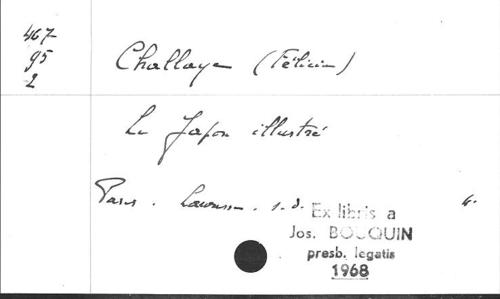 467
95
2
Challaye (Félicien)
Le Japon illustré
Paris. Larousse. s.d. 4°
Ex libris a
Jos. BOUQUIN
presb. legatis
1968